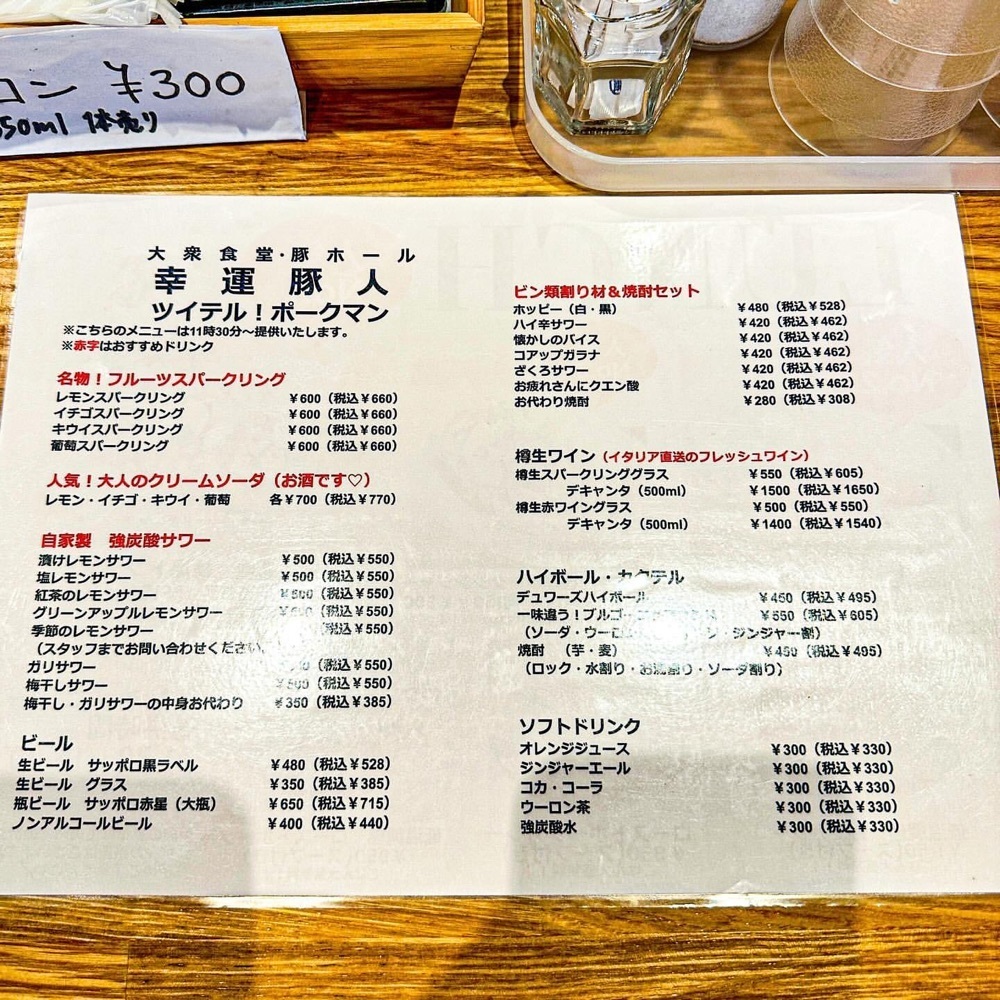 コン ¥300
50ml 1本売り
大衆食堂・豚ホール
幸運豚人
ツイテル！ポークマン
※こちらのメニューは11時30分～提供いたします。
※赤字はおすすめドリンク
名物！フルーツスパークリング
レモンスパークリング ￥600（税込￥660）
イチゴスパークリング ￥600（税込￥660）
キウイスパークリング ￥600（税込￥660）
葡萄スパークリング ￥600（税込￥660）
人気！大人のクリームソーダ（お酒です♡）
レモン・イチゴ・キウイ・葡萄 各￥700（税込￥770）
自家製 強炭酸サワー
漬けレモンサワー ￥500（税込￥550）
塩レモンサワー ￥500（税込￥550）
紅茶のレモンサワー ￥500（税込￥550）
グリーンアップルレモンサワー ￥500（税込￥550）
季節のレモンサワー （税込￥550）
（スタッフまでお問い合わせください。
ガリサワー （税込￥550）
梅干しサワー ￥500（税込￥550）
梅干し・ガリサワーの中身お代わり ￥350（税込￥385）
ビール
生ビール サッポロ黒ラベル ￥480（税込￥528）
生ビール グラス ￥350（税込￥385）
瓶ビール サッポロ赤星（大瓶） ￥650（税込￥715）
ノンアルコールビール ￥400（税込￥440）
ビン類割り材＆焼酎セット
ホッピー（白・黒） ￥480（税込￥528）
ハイ辛サワー ￥420（税込￥462）
懐かしのバイス ￥420（税込￥462）
コアップガラナ ￥420（税込￥462）
ざくろサワー ￥420（税込￥462）
お疲れさんにクエン酸 ￥420（税込￥462）
お代わり焼酎 ￥280（税込￥308）
樽生ワイン（イタリア直送のフレッシュワイン）
樽生スパークリンググラス ￥550（税込￥605）
デキャンタ（500ml） ￥1500（税込￥1650）
樽生赤ワイングラス ￥500（税込￥550）
デキャンタ（500ml） ￥1400（税込￥1540）
ハイボール・カクテル
デュワーズハイボール ￥450（税込￥495）
一味違う！ブルゴ ￥550（税込￥605）
（ソーダ・ウーロ ・ジンジャー割）
焼酎 （芋・麦） ￥450（税込￥495）
（ロック・水割り・お湯割り・ソーダ割り）
ソフトドリンク
オレンジジュース ￥300（税込￥330）
ジンジャーエール ￥300（税込￥330）
コカ・コーラ ￥300（税込￥330）
ウーロン茶 ￥300（税込￥330）
強炭酸水 ￥300（税込￥330）